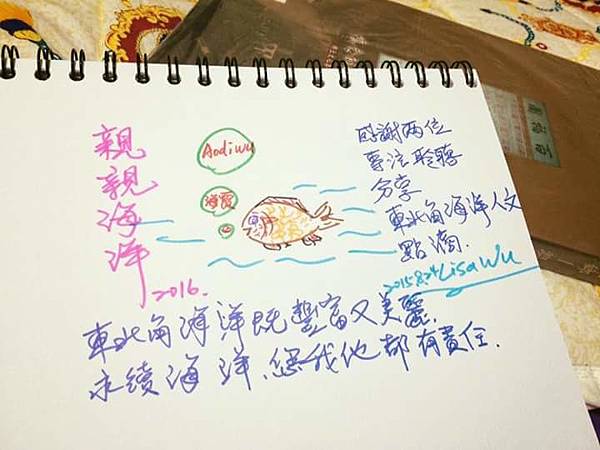 親親海洋
2016.
Aodiwu
感謝兩位
專注聆聽
分享
東北角海洋人文
點滴.
2015.8.24 Lisa Wu
東北角海洋既豐富又美麗,
永續海洋、您我他都有責任.